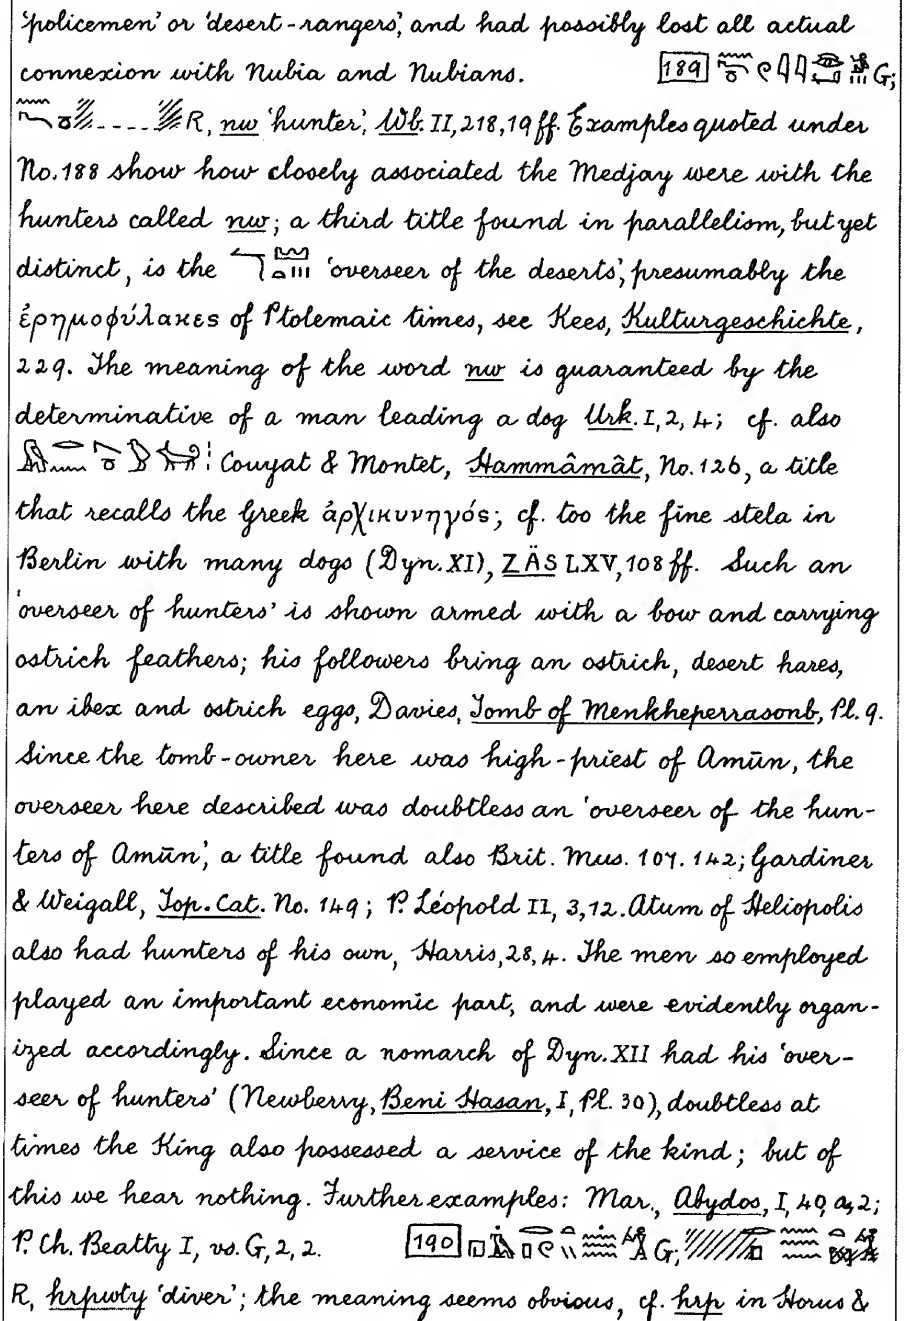 'policemen' or 'desert-rangers', and had possibly lost all actual
connexion with Nubia and Nubians. 189 G;
R, nw 'hunter', Wb. II, 218, 19 ff. Examples quoted under
No. 188 show how closely associated the Medjay were with the
hunters called nw; a third title found in parallelism, but yet
distinct, is the 'overseer of the deserts', presumably the
ἐρημοφύλακες of Ptolemaic times, see Kees, Kulturgeschichte,
229. The meaning of the word nw is guaranteed by the
determinative of a man leading a dog Urk. I, 2, 4; cf. also
Couyat & Montet, Hammâmât, No. 126, a title
that recalls the Greek ἀρχικυνηγός; cf. too the fine stela in
Berlin with many dogs (Dyn. XI), ZÄS LXV, 108 ff. Such an
'overseer of hunters' is shown armed with a bow and carrying
ostrich feathers; his followers bring an ostrich, desert hares,
an ibex and ostrich eggs, Davies, Tomb of Menkheperrasonb, Pl. 9.
Since the tomb-owner here was high-priest of Amūn, the
overseer here described was doubtless an 'overseer of the hun-
ters of Amūn', a title found also Brit. Mus. 107. 142; Gardiner
& Weigall, Top. Cat. No. 149; P. Léopold II, 3, 12. Atum of Heliopolis
also had hunters of his own, Harris, 28, 4. The men so employed
played an important economic part, and were evidently organ-
ized accordingly. Since a nomarch of Dyn. XII had his 'over-
seer of hunters' (Newberry, Beni Hasan, I, Pl. 30), doubtless at
times the King also possessed a service of the kind; but of
this we hear nothing. Further examples: Mar., Abydos, I, 49, a, 2;
P. Ch. Beatty I, vs. G, 2, 2. 190 G;
R, hrpwty 'diver'; the meaning seems obvious, cf. hrp in Horus &